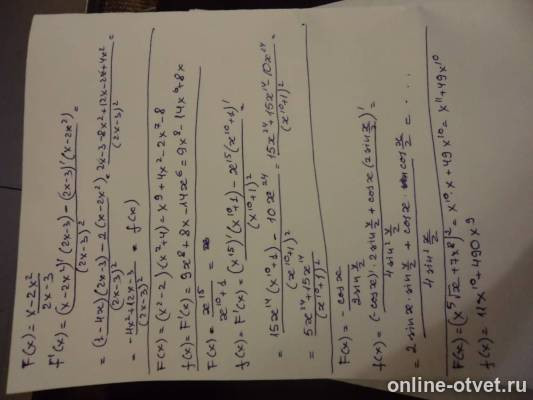 F(x) = x-2x²/2x-3
F'(x) = (x-2x²)'(2x-3) - (2x-3)'(x-2x²)/(2x-3)² =
= (1-4x)(2x-3) - 2(x-2x²)/(2x-3)² = 2x-3-8x²+12x-2x+4x²/(2x-3)² =
= -4x²+12x-3/(2x-3)² = f(x)
F(x) = (x²-2)(x⁷+4) = x⁹+4x²-2x⁷-8
f(x) = F'(x) = 9x⁸+8x-14x⁶ = 9x⁸-14x⁶+8x
F(x) = x¹⁵/x¹⁰+1 =
f(x) = F'(x) = (x¹⁵)'(x¹⁰+1) - x¹⁵(x¹⁰+1)'/(x¹⁰+1)² =
= 15x¹⁴(x¹⁰+1) - 10x²⁴/(x¹⁰+1)² = 15x²⁴+15x¹⁴-10x²⁴/(x¹⁰+1)² =
= 5x²⁴+15x¹⁴/(x¹⁰+1)²
F(x) = - cosx/2sin x/2
f(x) = (-cosx)'·2sin x/2 + cosx(2sin x/2)'/4sin² x/2 =
= 2sinx·sin x/2 + cosx·cos x/2/4sin² x/2 = ...
F(x) = (x⁵√x+7x⁸)² = x¹⁰·x+49x¹⁰ = x¹¹+49x¹⁰
f(x) = 11x¹⁰+490x⁹
online-otvet.ru